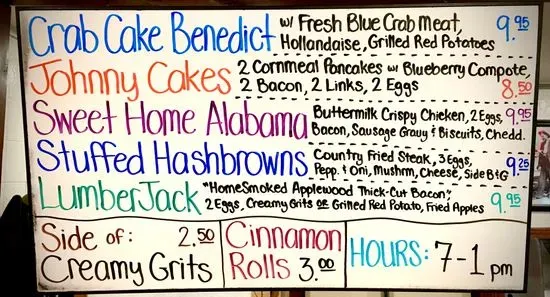 Crab Cake Benedict w/ Fresh Blue Crab Meat, 9.95
Hollandaise, Grilled Red Potatoes
Johnny Cakes 2 Cornmeal Pancakes w/ Blueberry Compote,
2 Bacon, 2 Links, 2 Eggs 8.50
Sweet Home Alabama Buttermilk Crispy Chicken, 2 Eggs, 9.95
Bacon, Sausage Gravy & Biscuits, Chedd.
Stuffed Hashbrowns Country Fried Steak, 3 Eggs, 9.25
Pepp. & Oni, Mushrm, Cheese, Side B&G
LumberJack "HomeSmoked Applewood Thick-Cut Bacon", 9.95
2 Eggs, Creamy Grits or Grilled Red Potato, Fried Apples
Side of: 2.50
Creamy Grits
Cinnamon
Rolls 3.00
HOURS: 7-1 pm